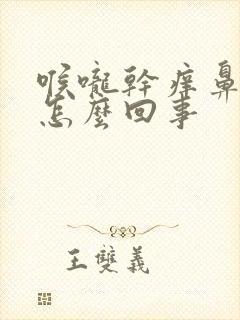 喉嚨幹痒鼻
怎麼回事
王雙義